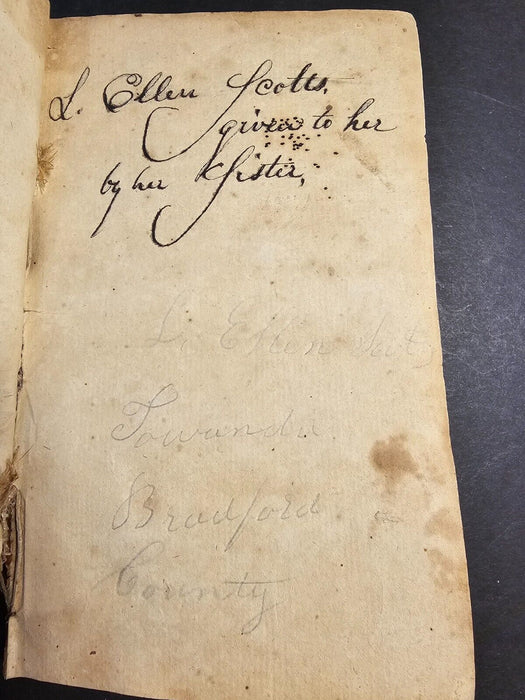 L. Ellen Scotts,
given to her
by her Sister,
L. Ellen Scott,
Towanda
Bradford
County